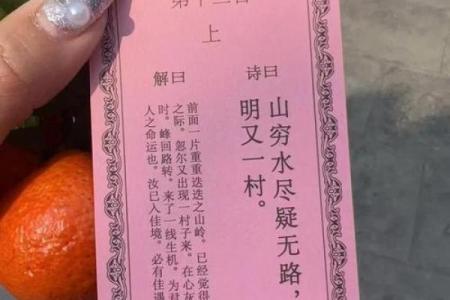 第十
上
诗曰
山穷水尽疑无路，
明又一村。
解曰
前面一片重重迭迭之山岭。已经觉得
之际。忽尔又出现一村子来。在心灰
时。峰回路转。来了一线生机。为君
人之命运也。汝已入佳境。必有佳遇